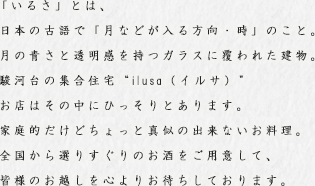 「いるさ」とは、
日本の古語で「月などが入る方向・時」のこと。
月の青さと透明感を持つガラスに覆われた建物。
駿河台の集合住宅“ilusa（イルサ）”
お店はその中にひっそりとあります。
家庭的だけどちょっと真似の出来ないお料理。
全国から選りすぐりのお酒をご用意して、
皆様のお越しを心よりお待ちしております。